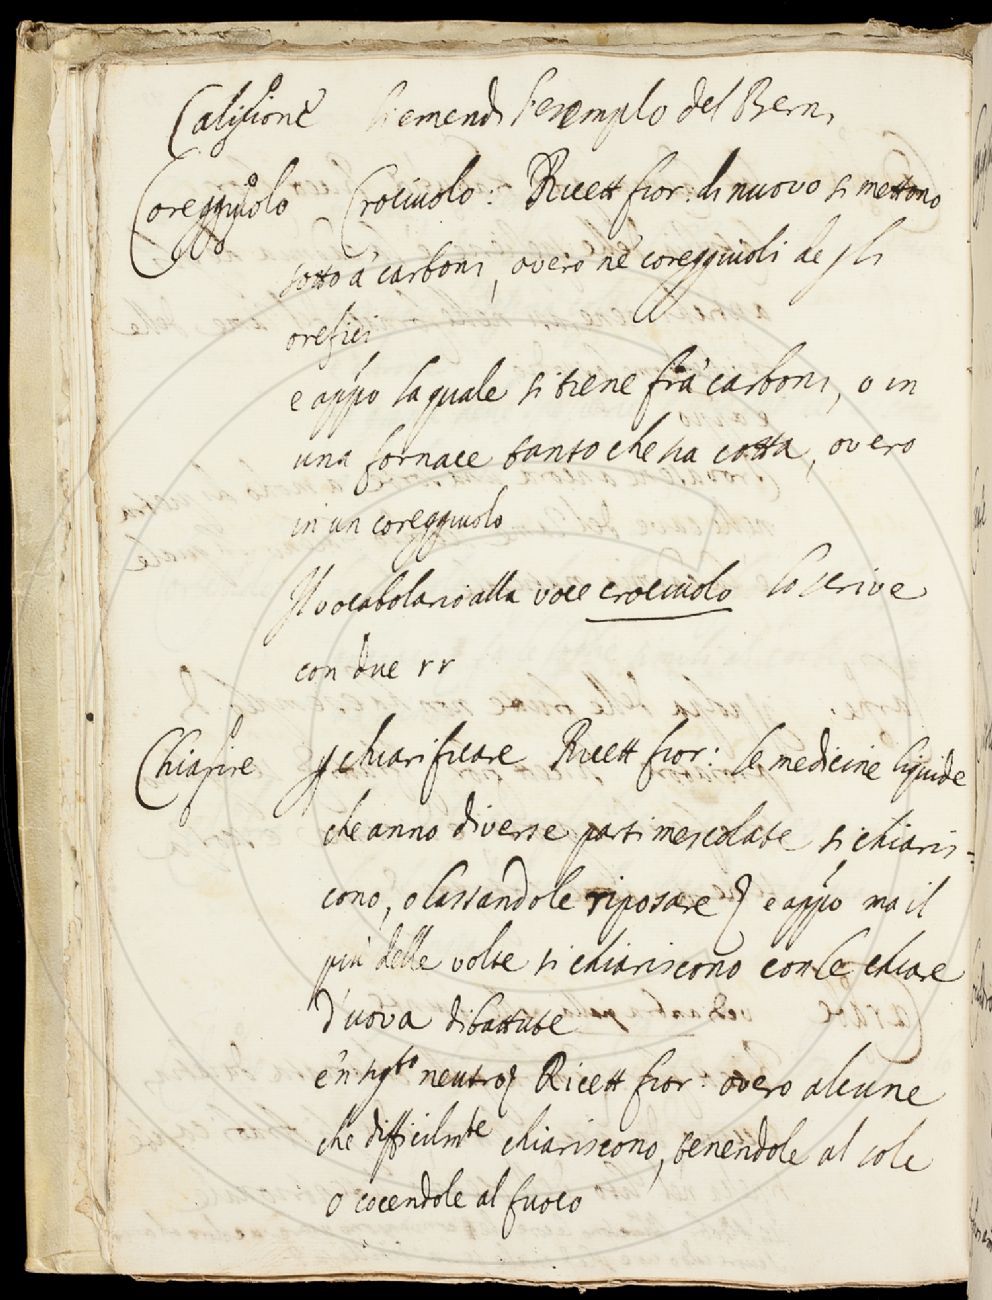 Caligione si emendi l'esemplo del Bern.
Coreggiuolo Crociuolo: Ricett fior: di nuovo si mettono
sotto a' carboni, overo ne' coreggiuoli degli
orefici
e appo la quale si tiene fra' carboni, o in
una fornace tanto che sia cotta, overo
in un coreggiuolo
Il vocabolario alla voce crociuolo lo scrive
con due rr
Chiarire p chiarificare Ricett fior: le medicine liquide
che anno diverse parti mescolate si chiaris=
cono, o lassandole riposare e appo ma il
più delle volte si chiariscono con le chiare
d'uova dibattute
è 'n sigto neutro Ricett fior: overo alcune
che difficilmte chiariscono, tenendole al sole
o cocendole al fuoco